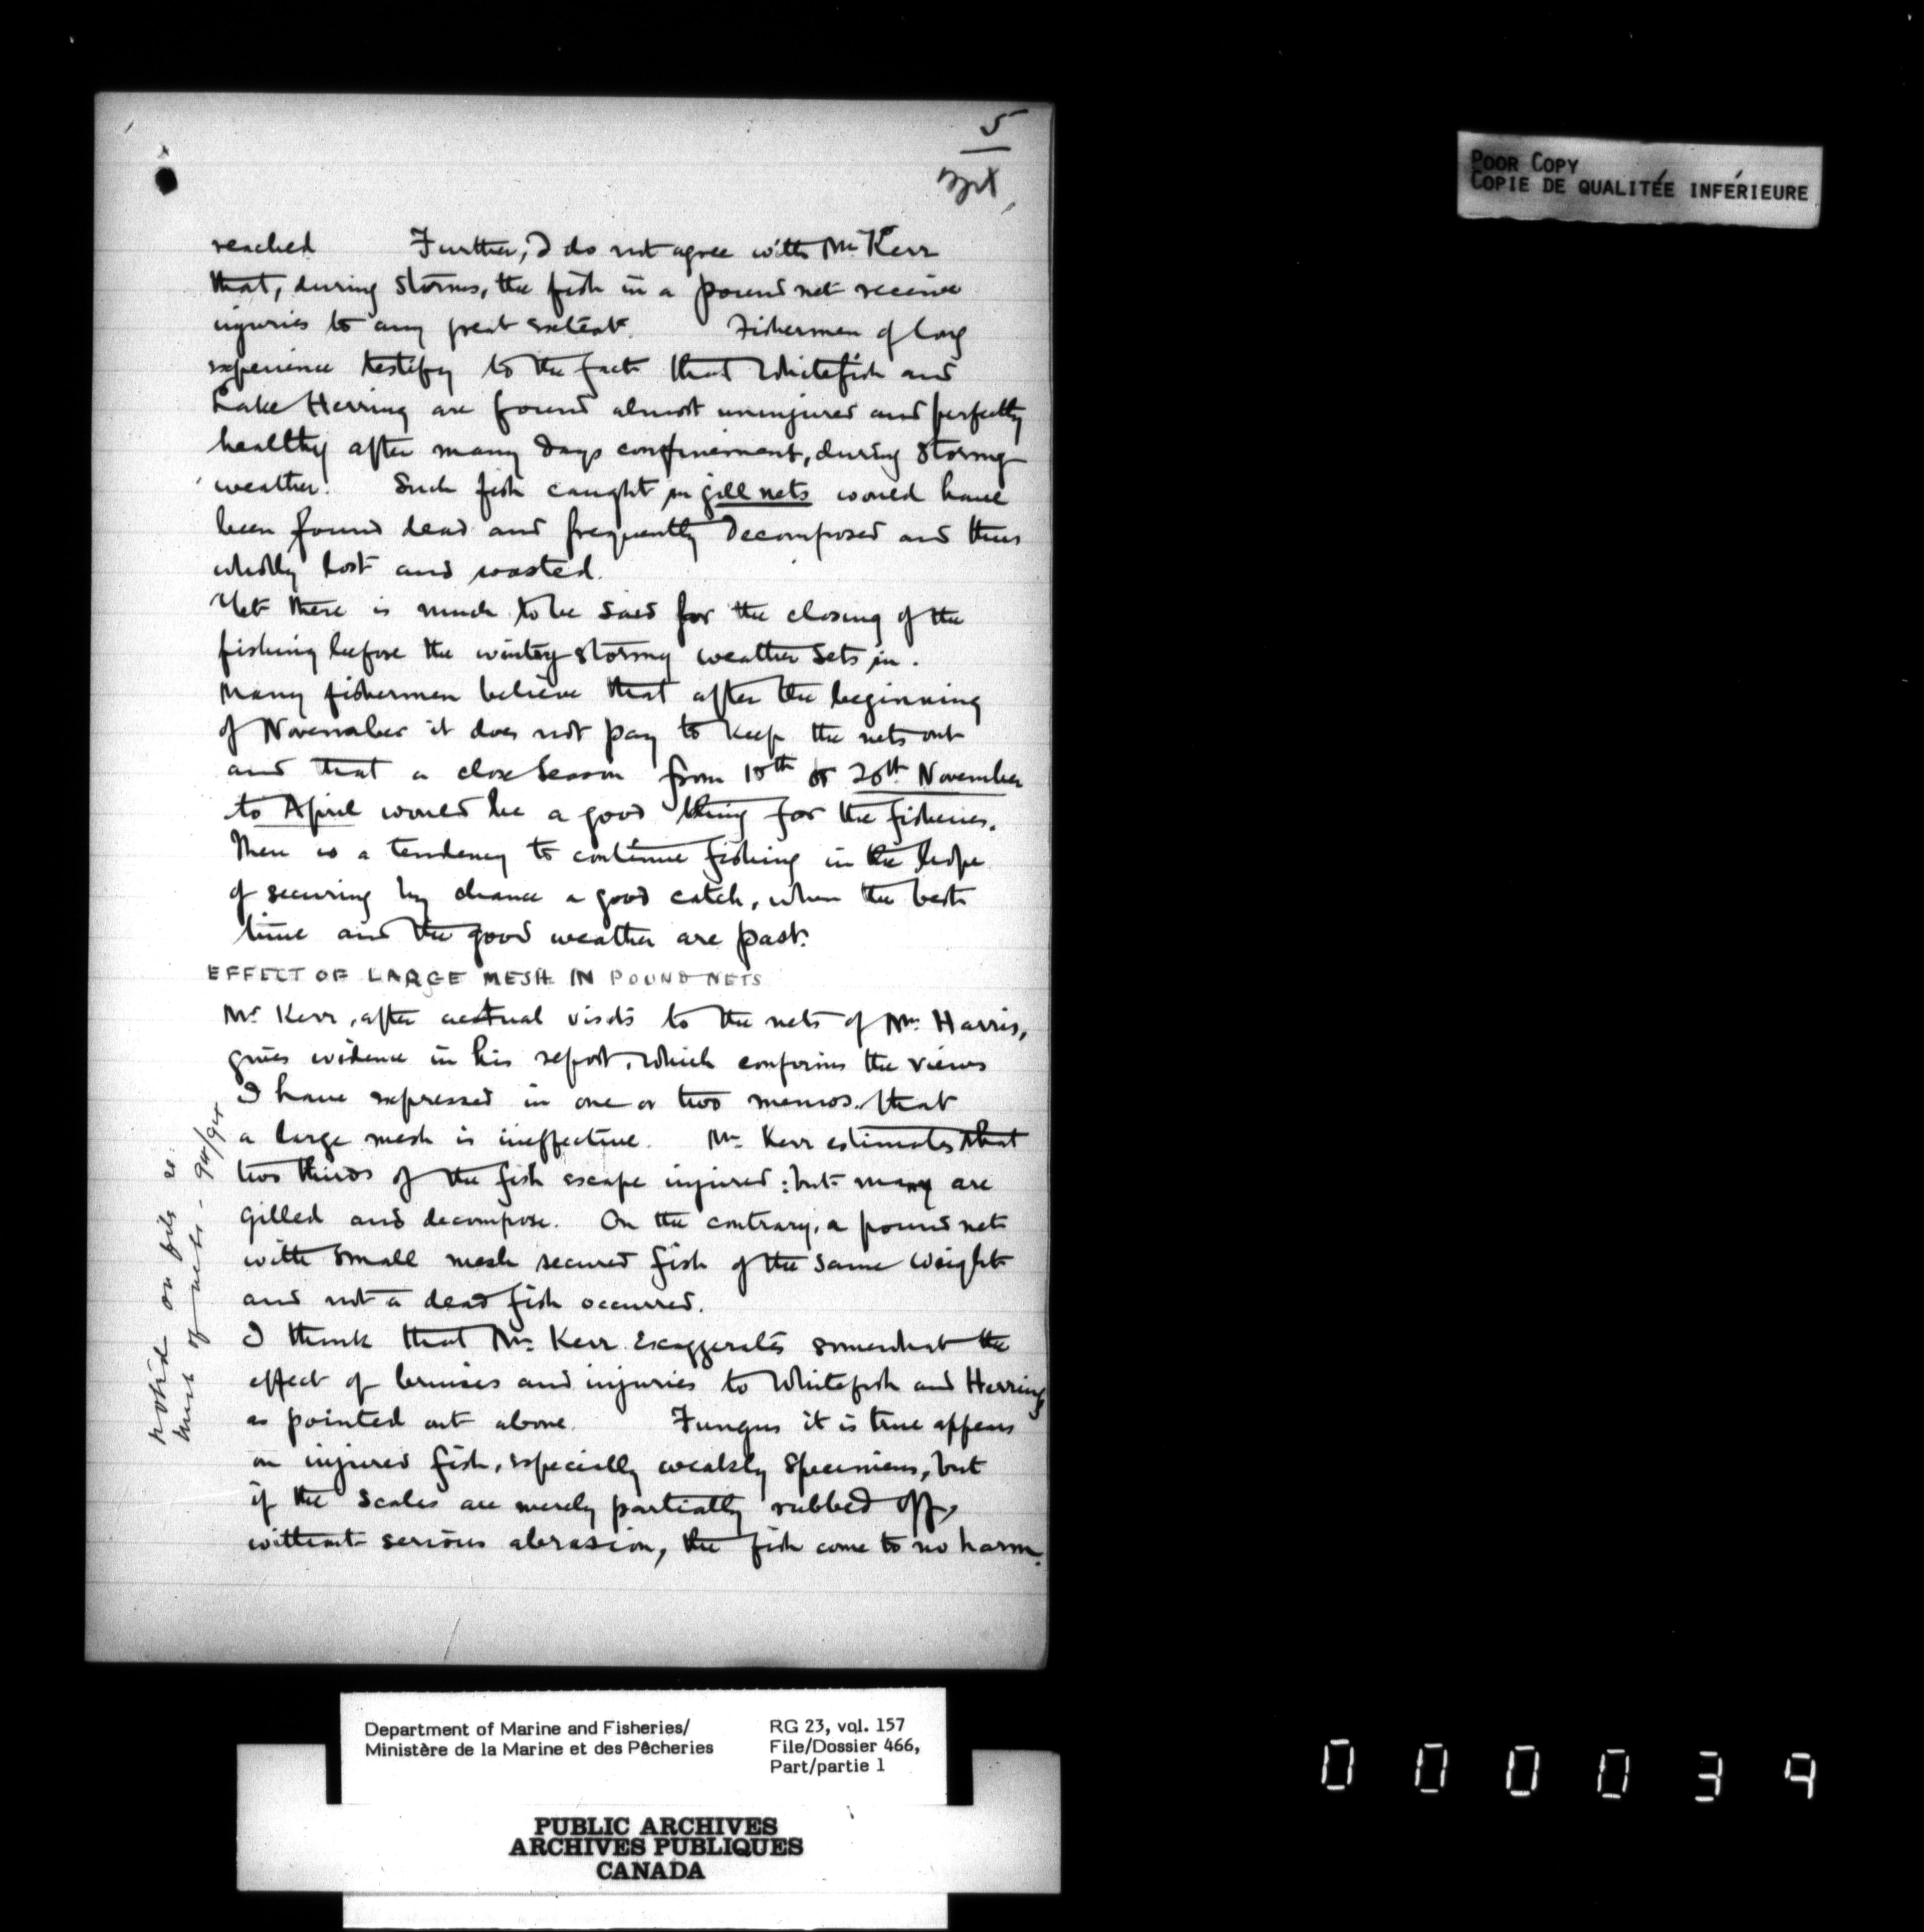 5
reached Further, I do not agree with Mr Kerr
that, during storms, the fish in a pound net receive
injuries to any great extent. Fishermen of long
experience testify to the fact that Whitefish and
Lake Herring are found almost uninjured and perfectly
healthy after many days confinement, during stormy
weather. Such fish caught in gill nets would have
been found dead and frequently decomposed and thus
wholly lost and wasted.
Yet there is much to be said for the closing of the
fishing before the wintry stormy weather sets in.
Many fishermen believe that after the beginning
of November it does not pay to keep the nets out
and that a close season from 15th or 20th November
to April would be a good thing for the fisheries.
There is a tendency to continue fishing in the hope
of securing by chance a good catch, when the best
time and the good weather are past.
EFFECT OF LARGE MESH IN POUND NETS
Mr Kerr, after actual visits to the nets of Mr. Harris,
gives evidence in his report, which confirms the views
I have expressed in one or two memos. that
a large mesh is ineffective. Mr. Kerr estimates that
two thirds of the fish escape injured: but many are
gilled and decompose. On the contrary, a pound net
with small mesh secured fish of the same weight
and not a dead fish occurred.
I think that Mr. Kerr exaggerates somewhat the
effect of bruises and injuries to Whitefish and Herring,
as pointed out above. Fungus it is true appears
on injured fish, especially weakly specimens, but
if the scales are merely partially rubbed off,
without serious abrasion, the fish come to no harm.
noted on file re:
of nets -
POOR COPY
COPIE DE QUALITÉE INFÉRIEURE
Department of Marine and Fisheries/
Ministère de la Marine et des Pêcheries
RG 23, vol. 157
File/Dossier 466,
Part/partie 1
PUBLIC ARCHIVES
ARCHIVES PUBLIQUES
CANADA
000039